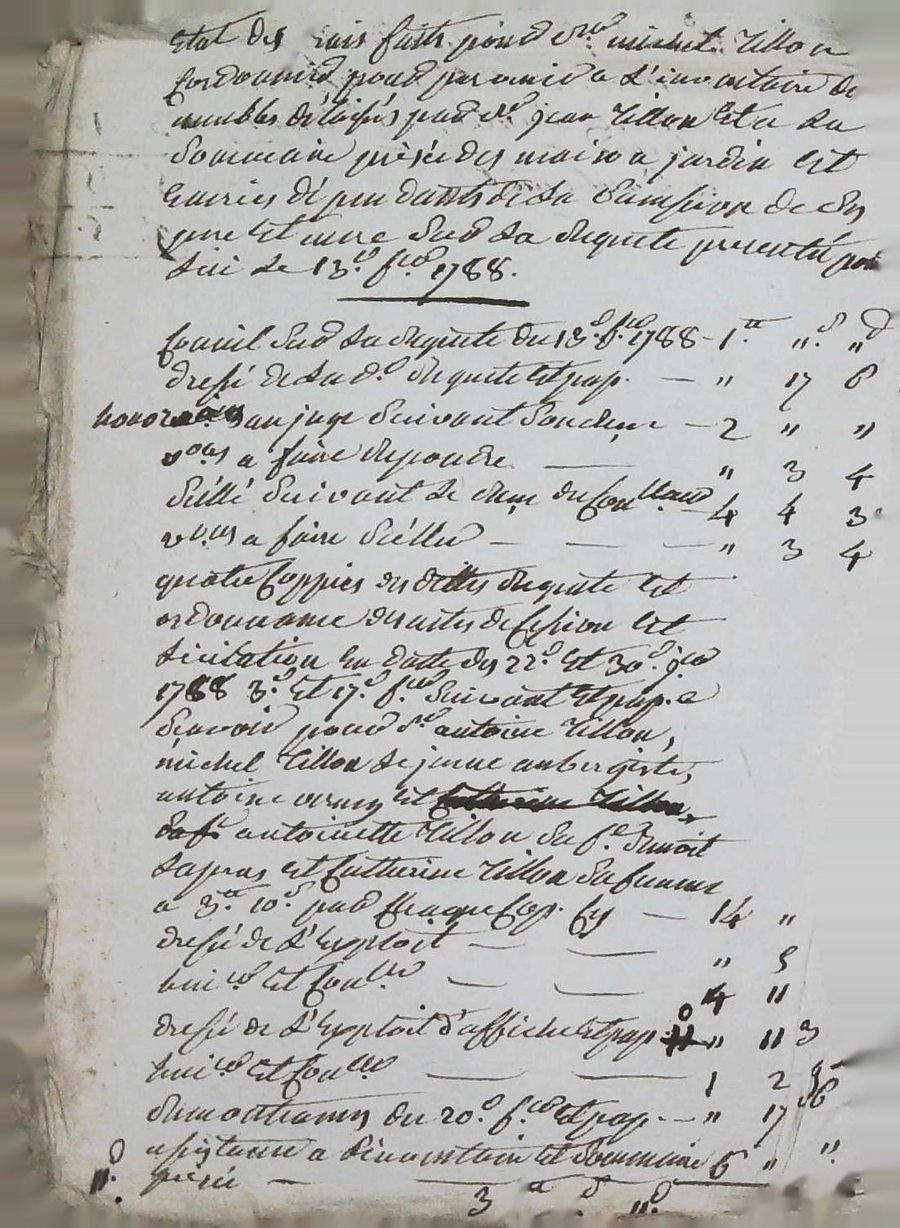 Etat des frais faits pour sr. michel Tillon
Cordonnier pour parvenir a l'inventaire de
meubles délaissés par sr. jean Tillon Et a la
Sommaire prisée des maison jardin Et
dépendants de la de Ses
pere Et mere Sur la Requete presentée par
lui le 13e. fer. 1788.
Conseil Sur la Requete du 13e. fer. 1788 - 1tt "s "d
dressé de lad. Requete Et pap. — " 17 6
honoraires au juge Suivant Son — 2 " "
vons a faire Repondre — " 3 4
Scéllé Suivant le du Conlleur — 4 4 3
vons a faire Scéller — — — " 3 4
quatre Coppies des dittes Requete Et
ordonnance des actes de Cession Et
licitation En datte des 22e. Et 30e.
1788 3e. Et 17e. fer. Suivant Et pap. a
Scavoir pour sr. antoine Tillon,
michel Tillon le jeune aubergiste,
antoine Et Catherine Tillon,
antoinette Tillon Sa fe. Benoit
Et Catherine Tillon Sa femme
a 3tt. 10s. par Chaque Cop. Cy — 14 "
dressé de L'Exploit — — " 5
huier Et Conller — — 4 "
dressé de L'Exploit d'affiche Et pap. " 11 3
huier Et Conller — — 1 2
du 20e. fer. Et pap. — " 17 6
assistance a L'inventaire Et Sommaire 6 " "
prisée —
3tt s "d